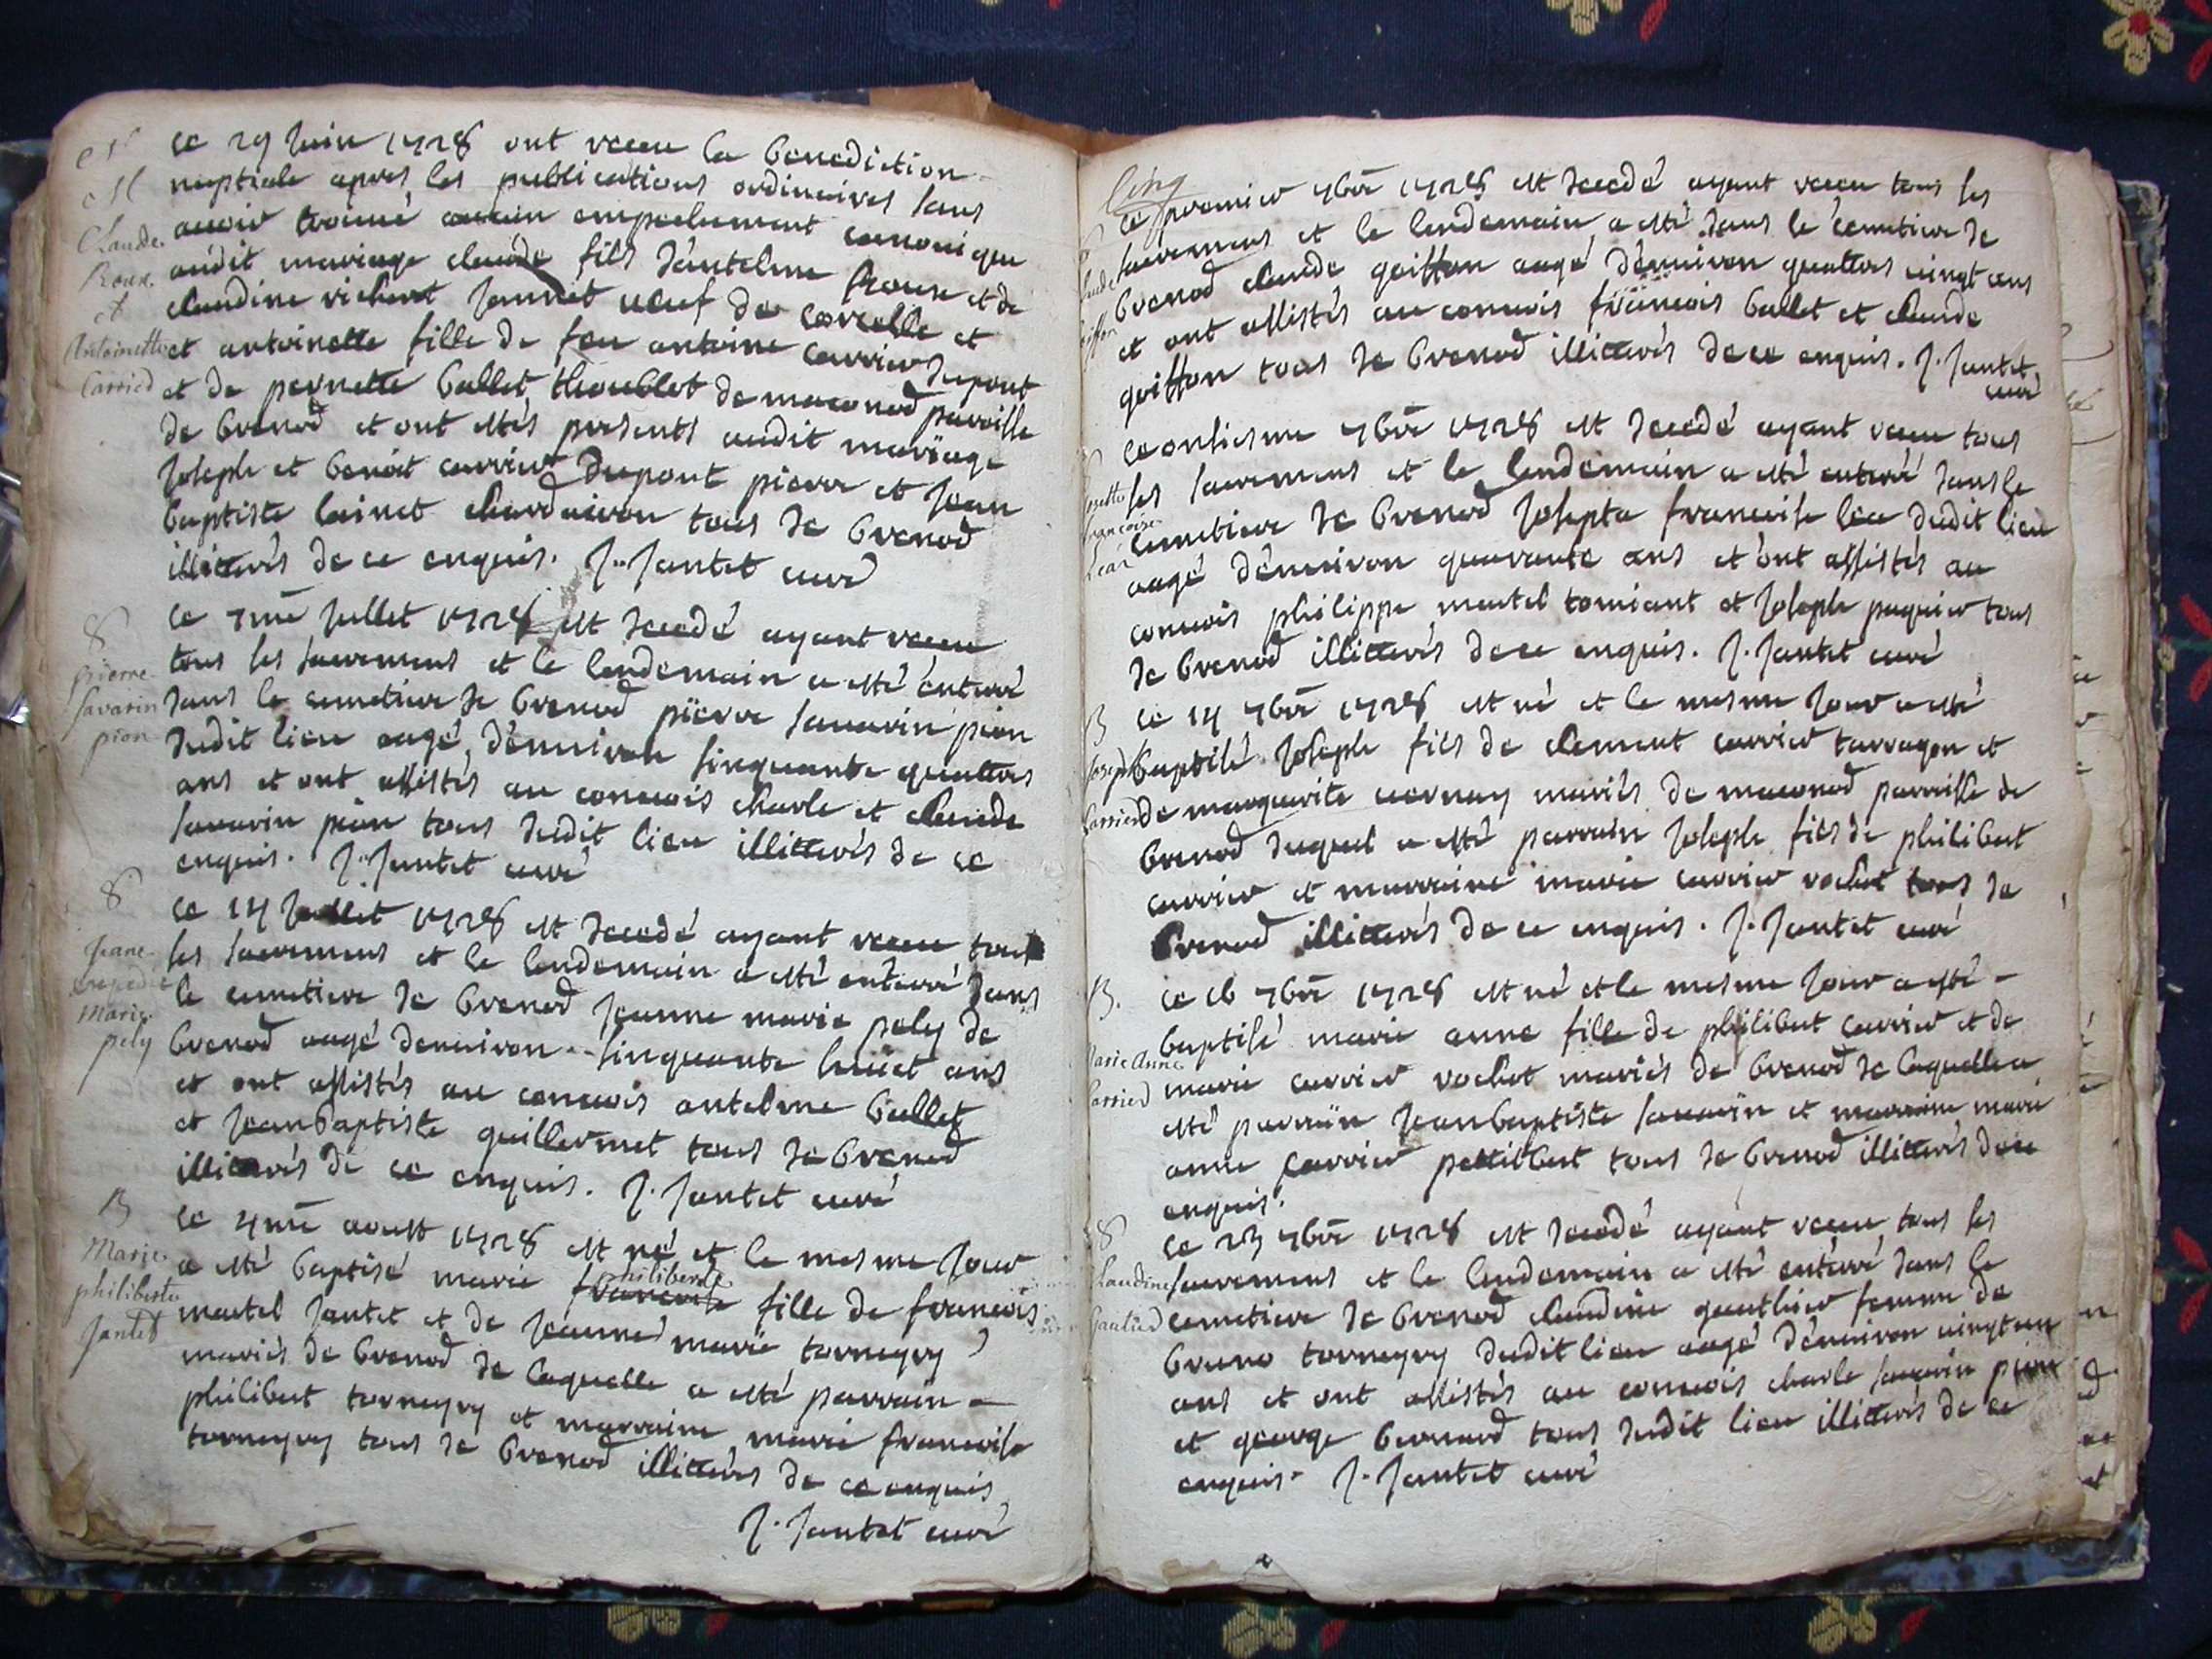 M
Claude
Roux
et
Antoinette
Carrier
ce 29 juin 1728 ont receu la benediction
nuptiale apres les publications ordinaires sans
auoir trouué aucun empeschement canonique
audit mariage claude fils d'antelme Roux et de
claudine richerot jannet ueuf de corcelle et
et antoinette fille de feu antoine carrier dupont
et de pernette ballet thoublot de maconod paroisse
de brenod et ont estés presents audit mariage
joseph et benoit carrier dupont pierre et jean
baptiste lainet chardueiron tous de brenod
illiterés de ce enquis. J. Jantet curé
8
pierre
savarin
pion
ce 7me jullet 1728 est decedé ayant receu
tous les sacremens et le lendemain a esté enterré
dans le cemetiere de brenod pierre sauarin pion
dudit lieu aagé d'enuiron sinquante quattres
ans et ont assistés au conuois charle et claude
sauarin pion tous dudit lieu illiterés de ce
enquis. J. Jantet curé
8
Jeane
Marie
pely
ce 14 jullet 1728 est decedé ayant receu tous
les sacremens et le lendemain a esté enterré dans
le cemetiere de brenod jeanne marie pely de
brenod aagé denuiron sinquante huict ans
et ont assistés au conuois antelme ballet
et jeanbaptiste guillermet tous de brenod
illiterés de ce enquis. J. Jantet curé
B
Marie
philiberte
Jantet
ce 4me aoust 1728 est né et le mesme jour
a esté baptisé marie francoise philiberte fille de francois
martel jantet et de jeanne marie torneyry
mariés de brenod de laquelle a esté parrain
philibert torneyry et marraine marie francoise
torneyry tous de brenod illiterés de ce enquis
J. Jantet curé
Cinq
ce premier 7bre 1728 est decedé ayant receu tous les
sacremens et le lendemain a esté dans le cemetiere de
brenod claude goiffon aagé d'enuiron quattres uingt ans
et ont assistés au conuois francois ballet et claude
goiffon tous de brenod illiterés de ce enquis. J. Jantet
curé
francoise
Lear
ce onsiesme 7bre 1728 est decedé ayant receu tous
les sacremens et le lendemain a esté enterré dans le
cemetiere de brenod josepta francoise lea dudit lieu
aagé d'enuiron quarante ans et ont assistés au
conuois philippe martel tomiant et joseph paquier tous
de brenod illiterés de ce enquis. J. Jantet curé
B
Joseph
Carrier
ce 14 7bre 1728 est né et le mesme jour a esté
baptisé joseph fils de clement carrier tarragon et
de marguerite uernay mariés de maconod parroisse de
brenod duquel a esté parrain joseph fils de philibert
carrier et marraine marie carrier rochet tous de
brenod illiterés de ce enquis. J. Jantet curé
B.
Marie Anne
Carrier
ce 16 7bre 1728 est né et le mesme jour a esté
baptisé marie anne fille de philibert carrier et de
marie carrier rochet mariés de brenod de laquelle a
esté parrain jeanbaptiste sauarin et marraine marie
anne carrier pettitbert tous de brenod illiterés de ce
enquis.
8
Claudine
Gautier
ce 23 7bre 1728 est decedé ayant receu tous les
sacremens et le lendemain a esté enterré dans le
cemetiere de brenod claudine gauthier femme de
bruno torneyry dudit lieu aagé d'enuiron uingt un
ans et ont assistés au conuois charle sauarin pion
et george bernard tous dudit lieu illiterés de ce
enquis. J. Jantet curé